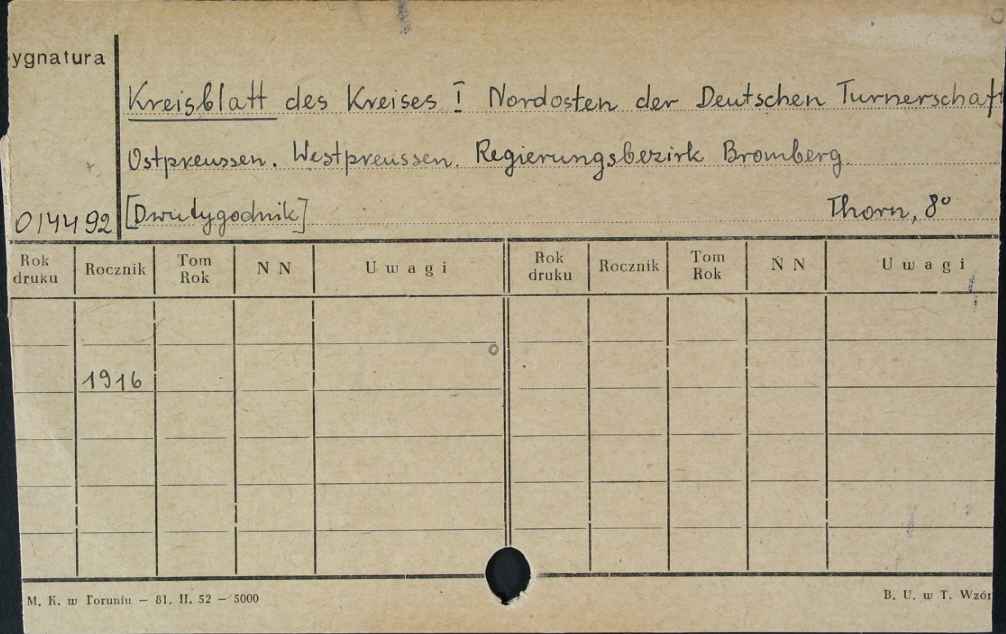 ygnatura
Kreisblatt des Kreises I Nordosten der Deutschen Turnerschaft
Ostpreussen. Westpreussen. Regierungsbezirk Bromberg.
014492 [Dwutygodnik] Thorn, 8°
Rok druku Rocznik Tom Rok N N Uwagi Rok druku Rocznik Tom Rok N N Uwagi
1916
M. K. w Toruniu – 81. II. 52 – 5000 B. U. w T. Wzór